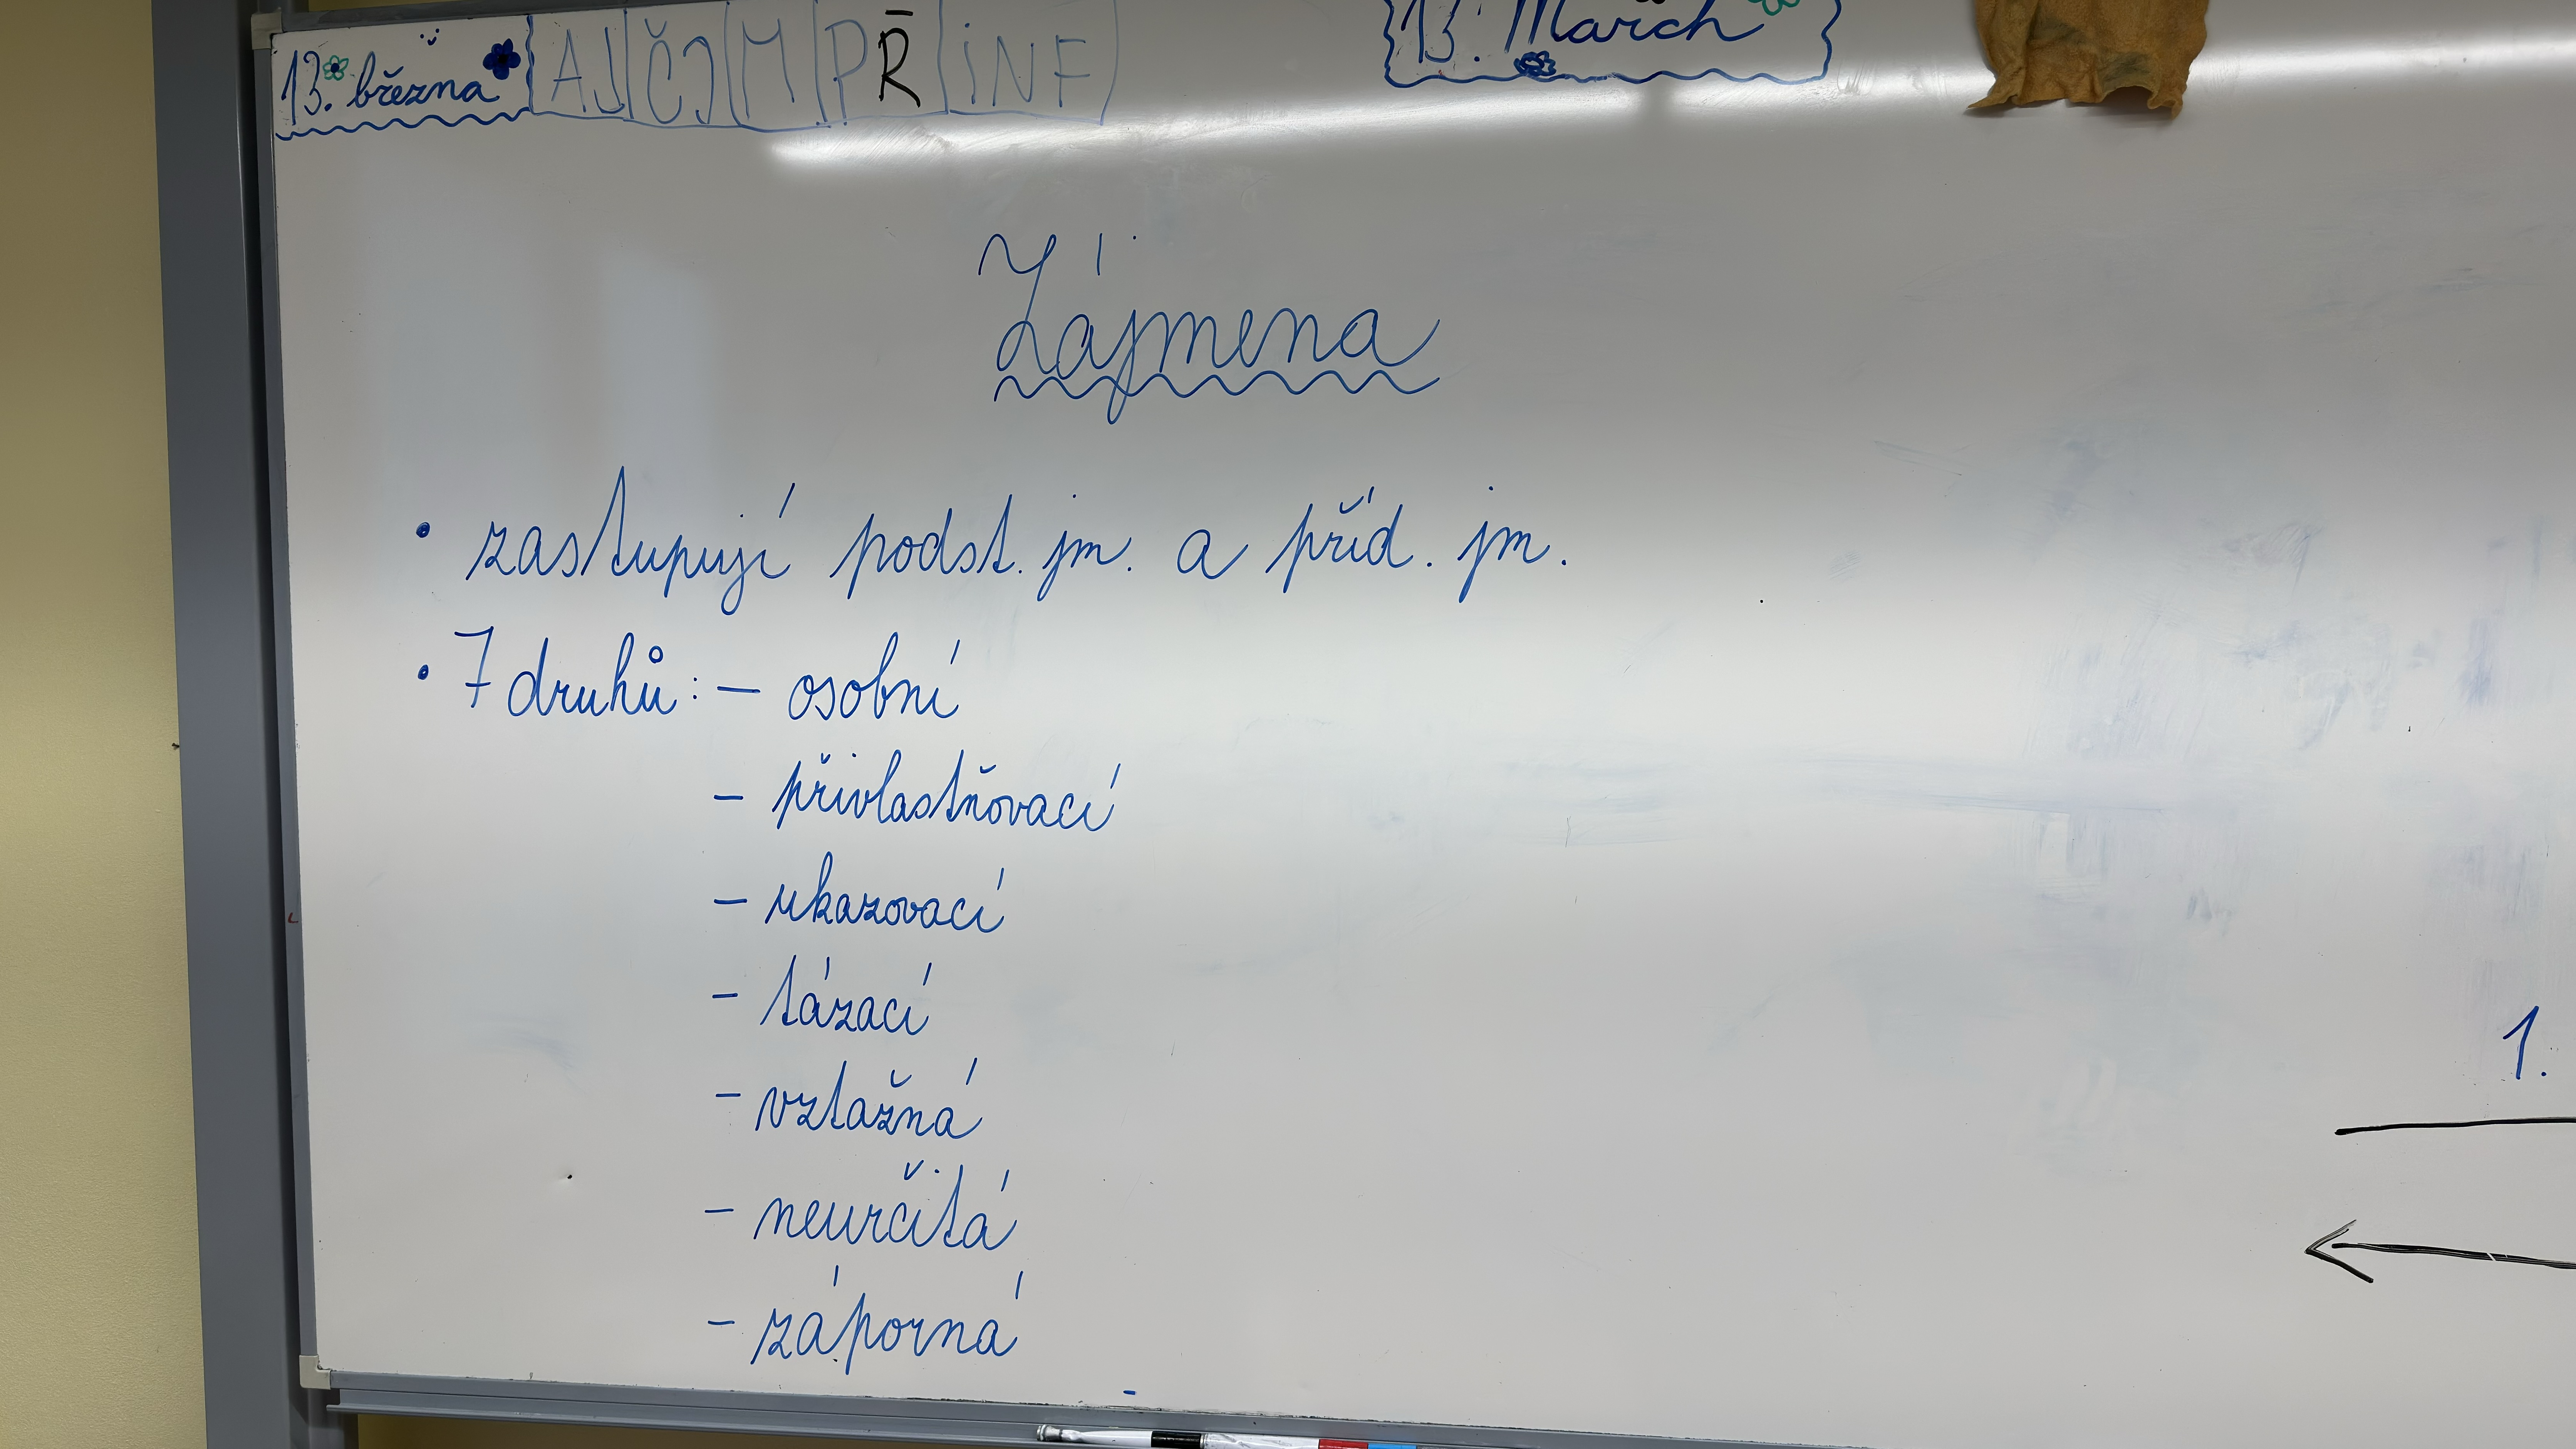 13. března AJ ČJ M PŘ INF
13. March
Zájmena
• zastupují podst. jm. a příd. jm.
• 7 druhů: – osobní
– přivlastňovací
– ukazovací
– tázací
– vztažná
– neurčitá
– záporná
1.